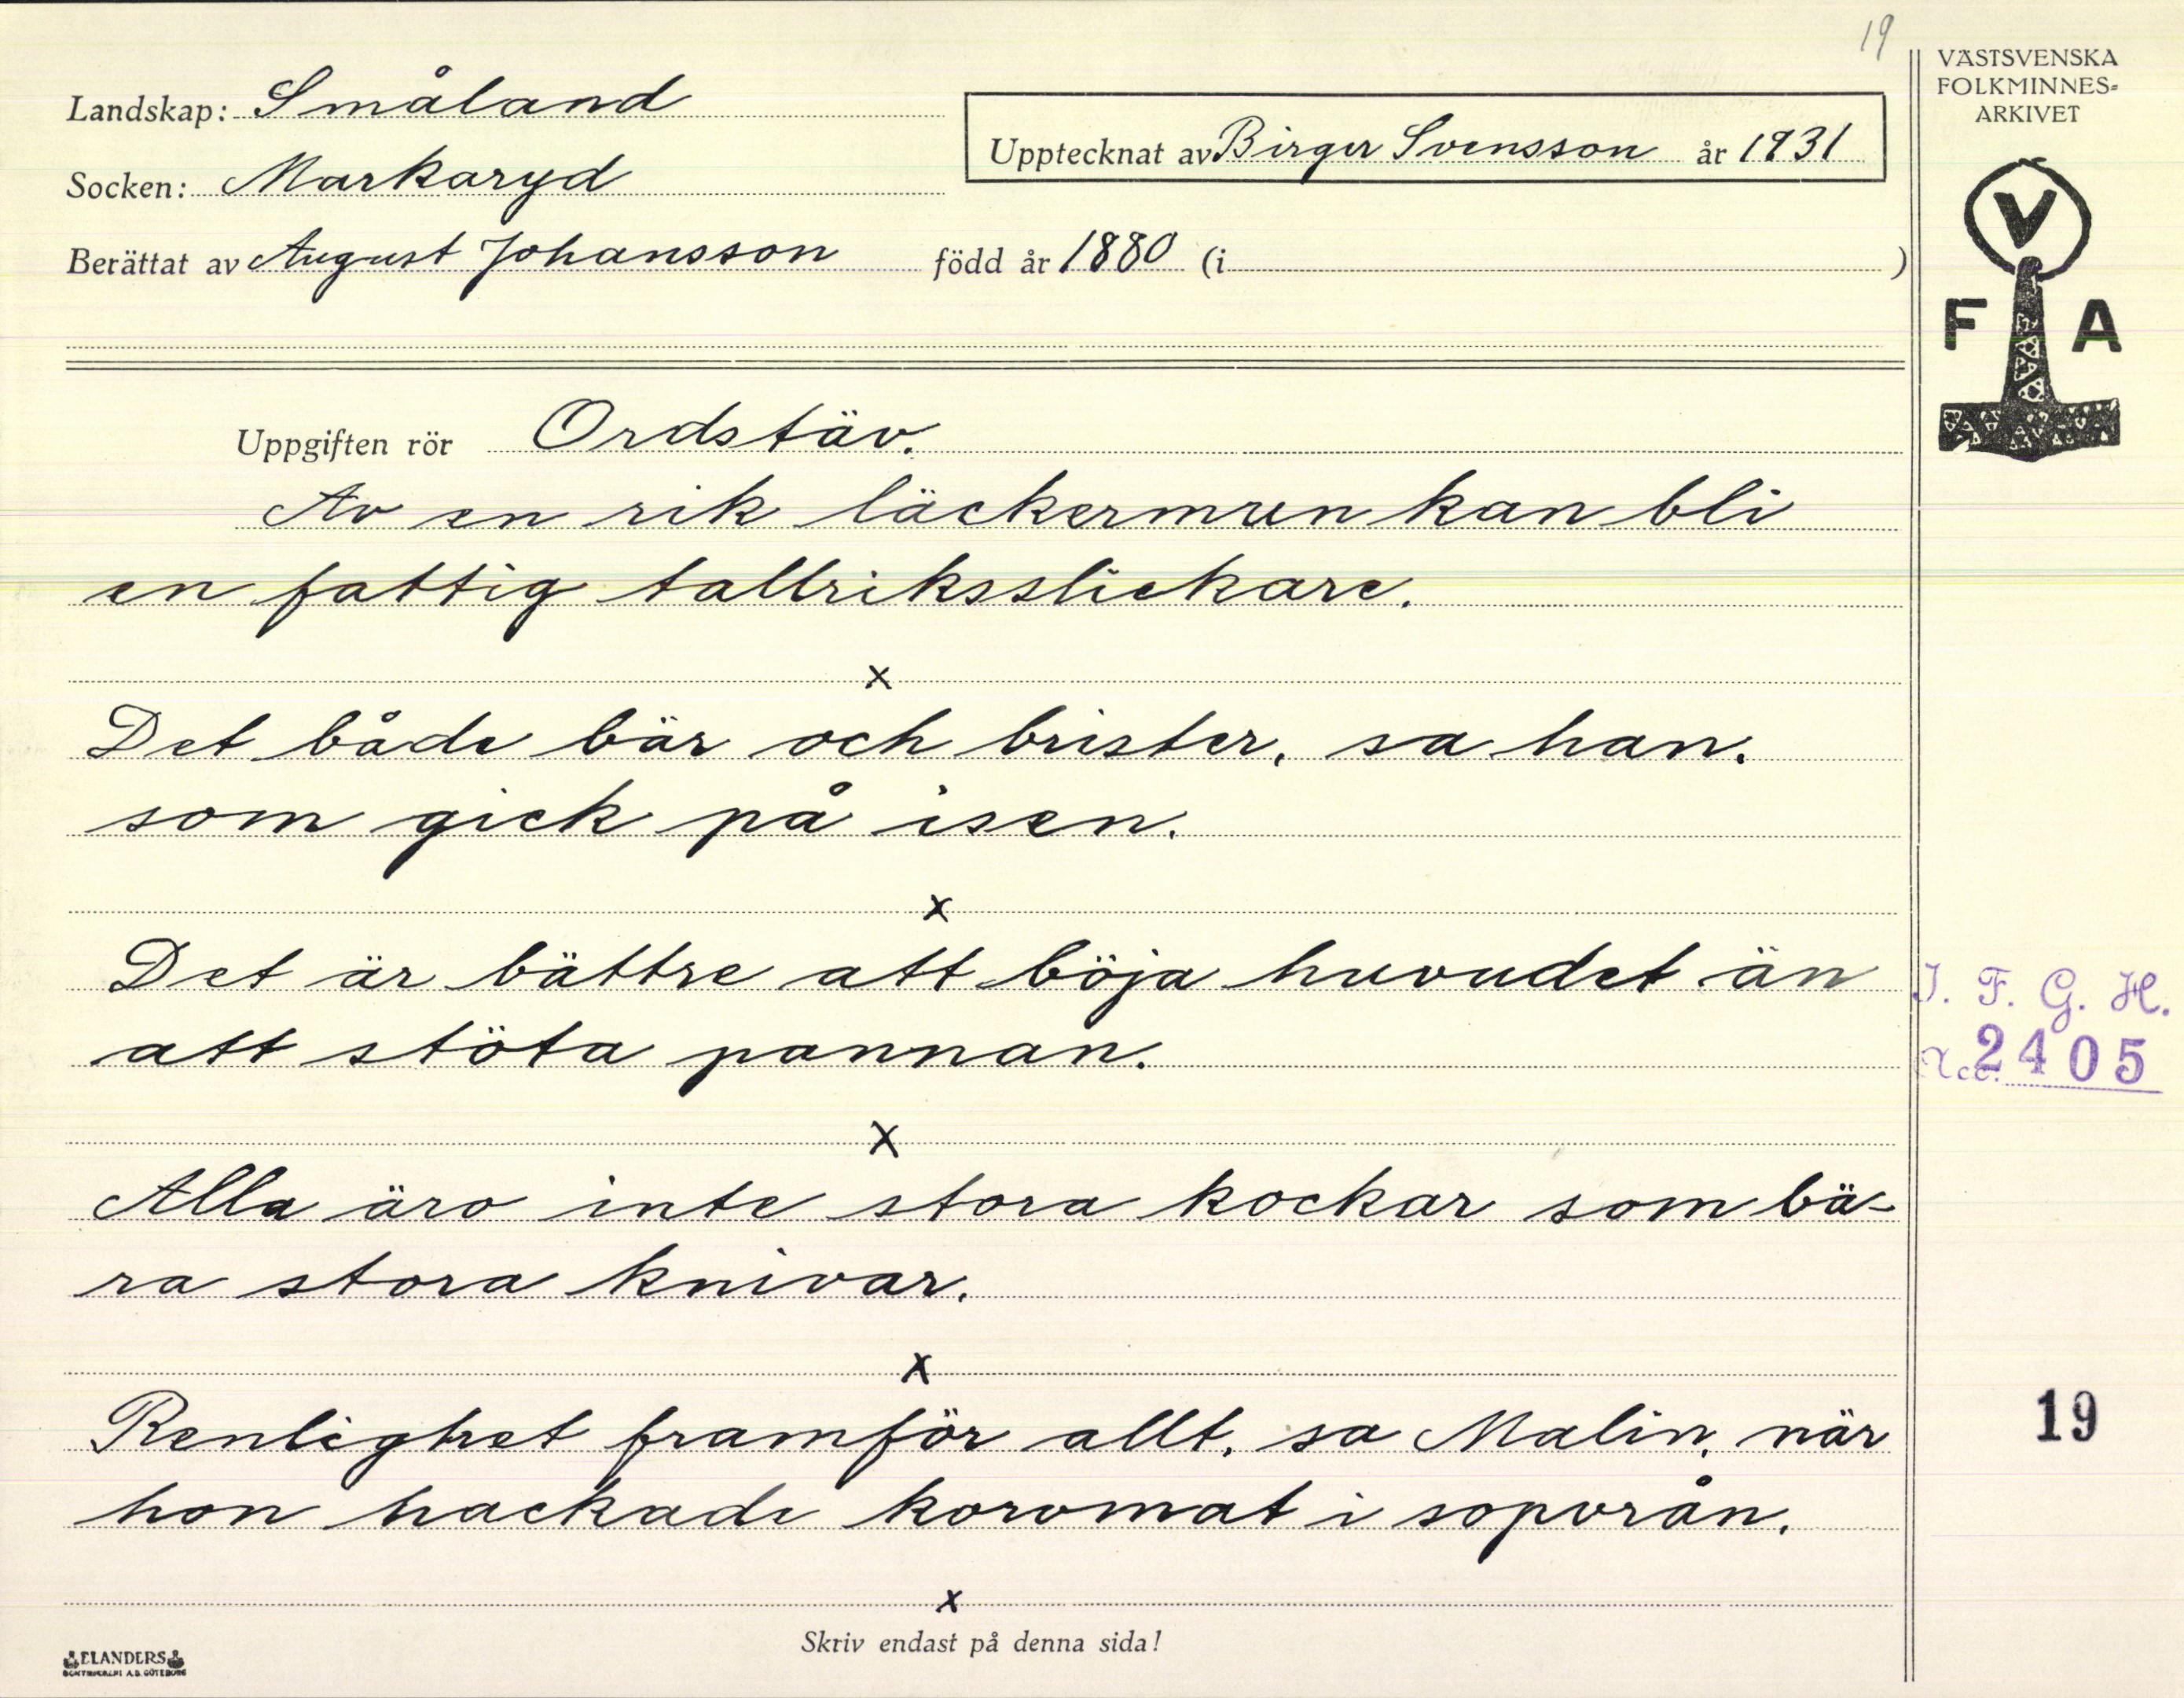 19
VÄSTSVENSKA
FOLKMINNES-
ARKIVET
Landskap: Småland
Upptecknat av Birger Svensson år 1931
Socken: Markaryd
Berättat av August Johansson född år 1880 (i )
V
F A
Uppgiften rör Ordstäv.
Av en rik läckermun kan bli
en fattig tallriksslickare.
x
Det både bär och brister, sa han,
som gick på isen.
x
Det är bättre att böja huvudet än
att stöta pannan.
I. F. G. H.
Acc. 2405
x
Alla äro inte stora kockar som bä-
ra stora knivar.
x
Renlighet framför allt, sa Malin, när
hon hackade korvmat i sopvrån.
19
x
Skriv endast på denna sida!
ELANDERS
BOKTRYCKERI A.B. GÖTEBORG